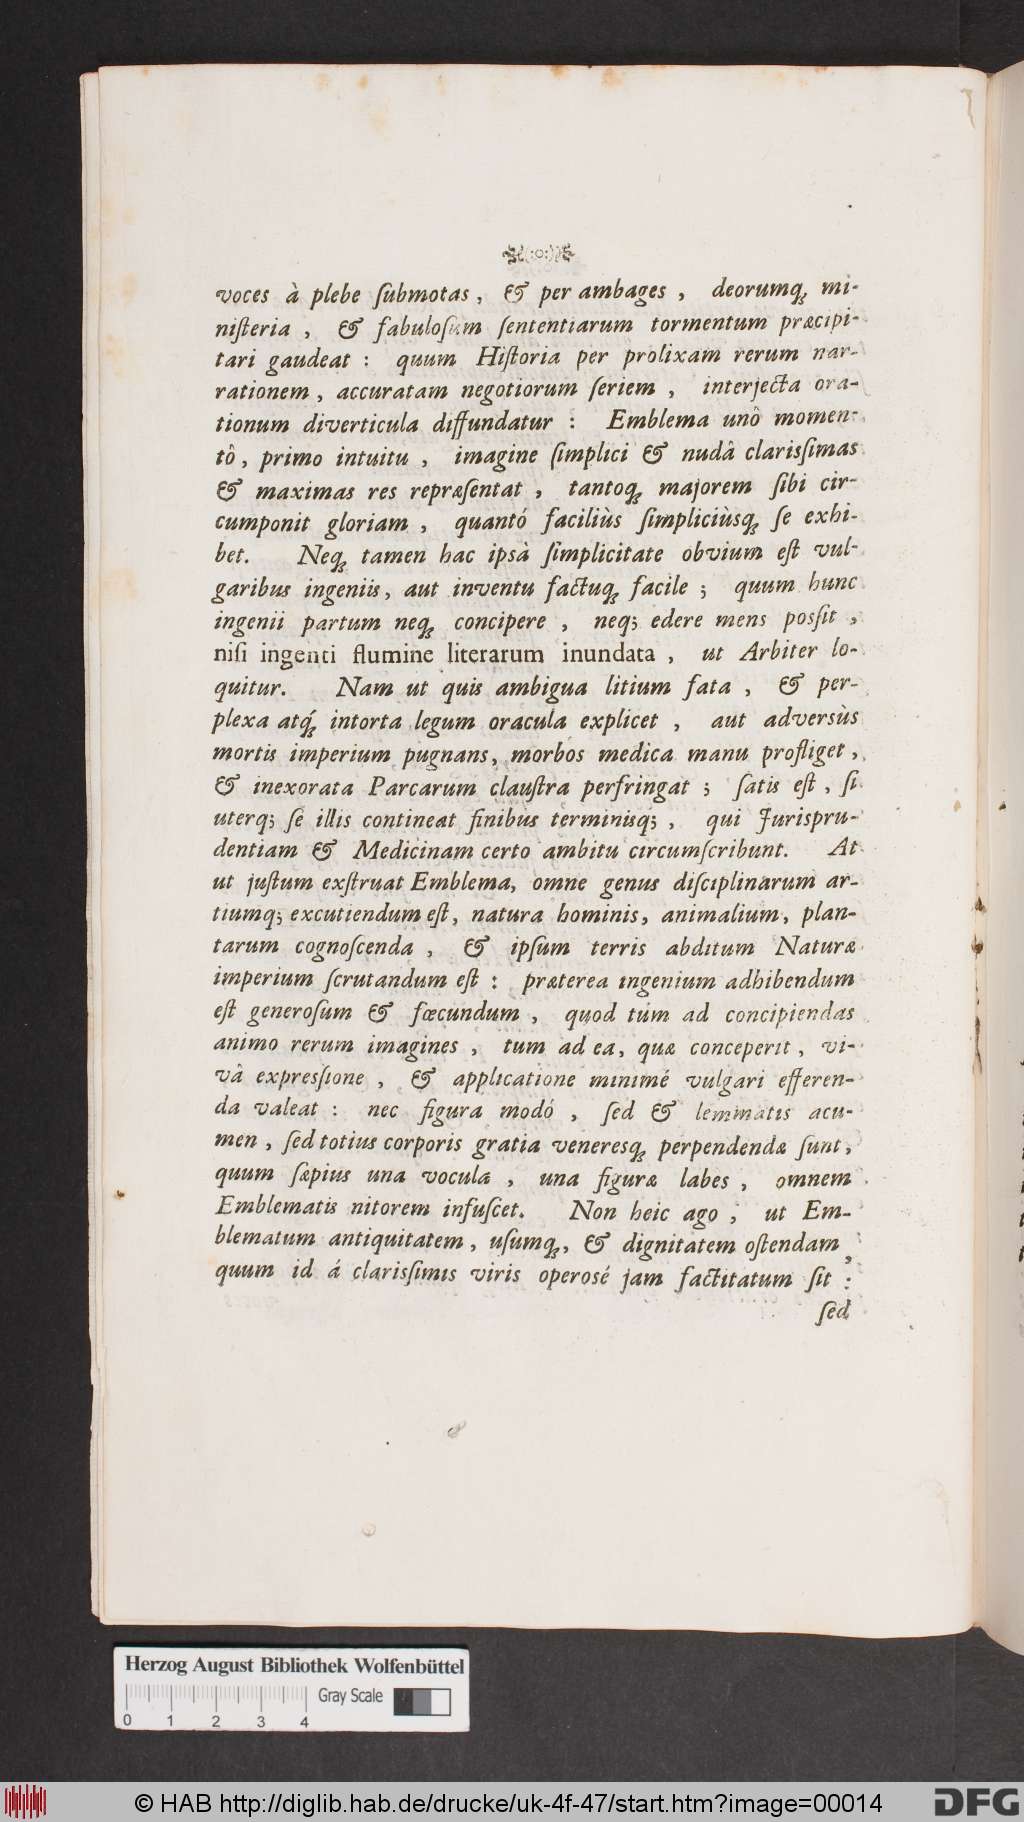 voces à plebe ſubmotas, & per ambages, deorumq́ue mi-
niſteria, & fabuloſum ſententiarum tormentum præcipi-
tari gaudeat: quum Hiſtoria per prolixam rerum nar-
rationem, accuratam negotiorum ſeriem, interjecta ora-
tionum diverticula diffundatur: Emblema unô momen-
tô, primo intuitu, imagine ſimplici & nudâ clariſsimas
& maximas res repræſentat, tantoq; majorem ſibi cir-
cumponit gloriam, quantó faciliùs ſimpliciùsq; ſe exhi-
bet. Neq; tamen hac ipsà ſimplicitate obvium eſt vul-
garibus ingeniis, aut inventu factuq; facile; quum hunc
ingenii partum neq; concipere, neq; edere mens poſsit,
niſi ingenti flumine literarum inundata, ut Arbiter lo-
quitur. Nam ut quis ambigua litium fata, & per-
plexa atq́; intorta legum oracula explicet, aut adversùs
mortis imperium pugnans, morbos medica manu profliget,
& inexorata Parcarum clauſtra perfringat; ſatis eſt, ſi
uterq; ſe illis contineat finibus terminisq;, qui Jurispru-
dentiam & Medicinam certo ambitu circumſcribunt. At
ut juſtum exſtruat Emblema, omne genus diſciplinarum ar-
tiumq; excutiendum eſt, natura hominis, animalium, plan-
tarum cognoſcenda, & ipſum terris abditum Naturæ
imperium ſcrutandum eſt: præterea ingenium adhibendum
eſt generoſum & fœcundum, quod tum ad concipiendas
animo rerum imagines, tum ad ea, quæ conceperit, vi-
vâ expreſsione, & applicatione minimé vulgari efferen-
da valeat: nec figura modó, ſed & lemmatis acu-
men, ſed totius corporis gratia veneresq; perpendendæ ſunt,
quum ſæpius una vocula, una figuræ labes, omnem
Emblematis nitorem infuſcet. Non heic ago, ut Em-
blematum antiquitatem, uſumq;, & dignitatem oſtendam,
quum id á clariſsimis viris operosé jam factitatum ſit:
ſed
Herzog August Bibliothek Wolfenbüttel
Gray Scale
0 1 2 3 4
© HAB http://diglib.hab.de/drucke/uk-4f-47/start.htm?image=00014
DFG